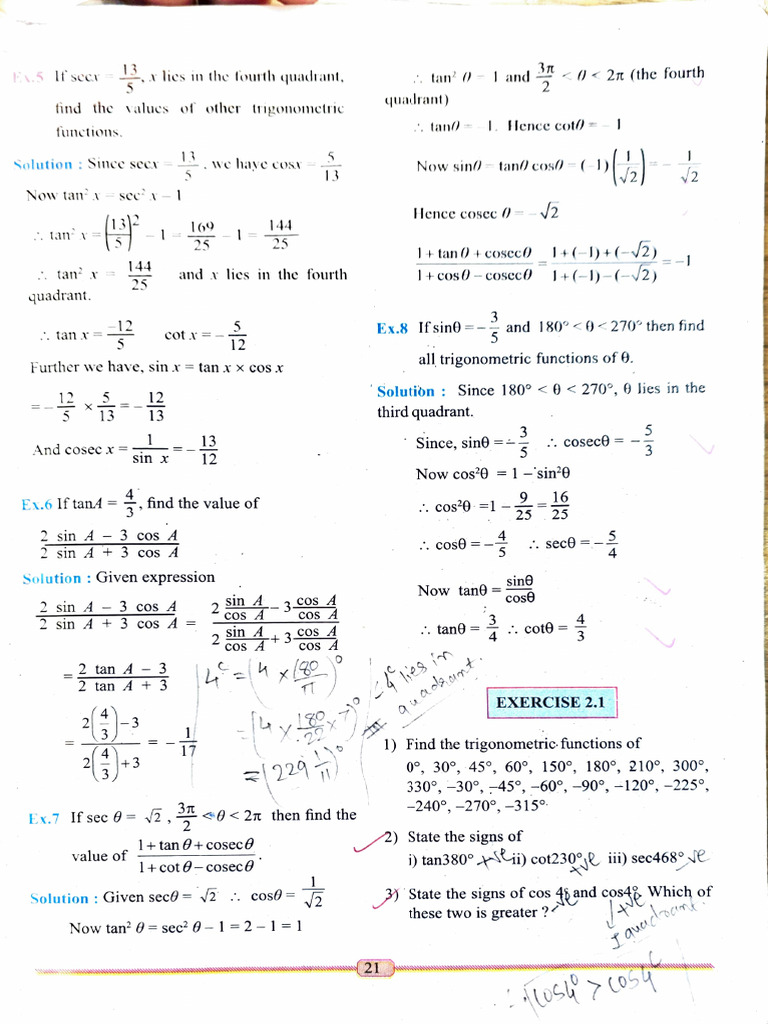 Ex.5 If secx = 13/5, x lies in the fourth quadrant,
find the values of other trigonometric
functions.
Solution : Since secx = 13/5, we have cosx = 5/13
Now tan² x = sec² x – 1
∴ tan² x = (13/5)² – 1 = 169/25 – 1 = 144/25
∴ tan² x = 144/25 and x lies in the fourth
quadrant.
∴ tan x = –12/5 cot x = – 5/12
Further we have, sin x = tan x × cos x
= – 12/5 × 5/13 = – 12/13
And cosec x = 1/sin x = – 13/12
Ex.6 If tanA = 4/3, find the value of
2 sin A – 3 cos A / 2 sin A + 3 cos A
Solution : Given expression
2 sin A – 3 cos A / 2 sin A + 3 cos A = 2 sin A/cos A – 3 cos A/cos A / 2 sin A/cos A + 3 cos A/cos A
= 2 tan A – 3 / 2 tan A + 3
= 2(4/3) – 3 / 2(4/3) + 3 = – 1/17
4ᶜ = (4 × 180/π)°
= (4 × 180/22 × 7)°
= (229 1/π)°
– 4ᶜ lies in
III quadrant.
Ex.7 If sec θ = √2 , 3π/2 < θ < 2π then find the
value of 1 + tan θ + cosecθ / 1 + cot θ – cosecθ .
Solution : Given secθ = √2 ∴ cosθ = 1/√2
Now tan² θ = sec² θ – 1 = 2 – 1 = 1
∴ tan² θ = 1 and 3π/2 < θ < 2π (the fourth
quadrant)
∴ tanθ = – 1. Hence cotθ = – 1
Now sinθ = tanθ cosθ = (–1)(1/√2) = – 1/√2
Hence cosec θ = – √2
1 + tan θ + cosecθ / 1 + cos θ – cosecθ = 1 + (–1) + (–√2) / 1 + (–1) – (–√2) = –1
Ex.8 If sinθ = – 3/5 and 180° < θ < 270° then find
all trigonometric functions of θ.
Solution : Since 180° < θ < 270°, θ lies in the
third quadrant.
Since, sinθ = – 3/5 ∴ cosecθ = – 5/3
Now cos²θ = 1 – sin²θ
∴ cos²θ = 1 – 9/25 = 16/25
∴ cosθ = – 4/5 ∴ secθ = – 5/4
Now tanθ = sinθ/cosθ
∴ tanθ = 3/4 ∴ cotθ = 4/3
EXERCISE 2.1
1) Find the trigonometric functions of
0°, 30°, 45°, 60°, 150°, 180°, 210°, 300°,
330°, –30°, –45°, –60°, –90°, –120°, –225°,
–240°, –270°, –315°
2) State the signs of
i) tan380° +ve ii) cot230° +ve iii) sec468° –ve
3) State the signs of cos 4ᶜ –ve and cos4°. Which of
these two is greater ?
+ve
I quadrant.
∴ cos4° > cos4ᶜ
21